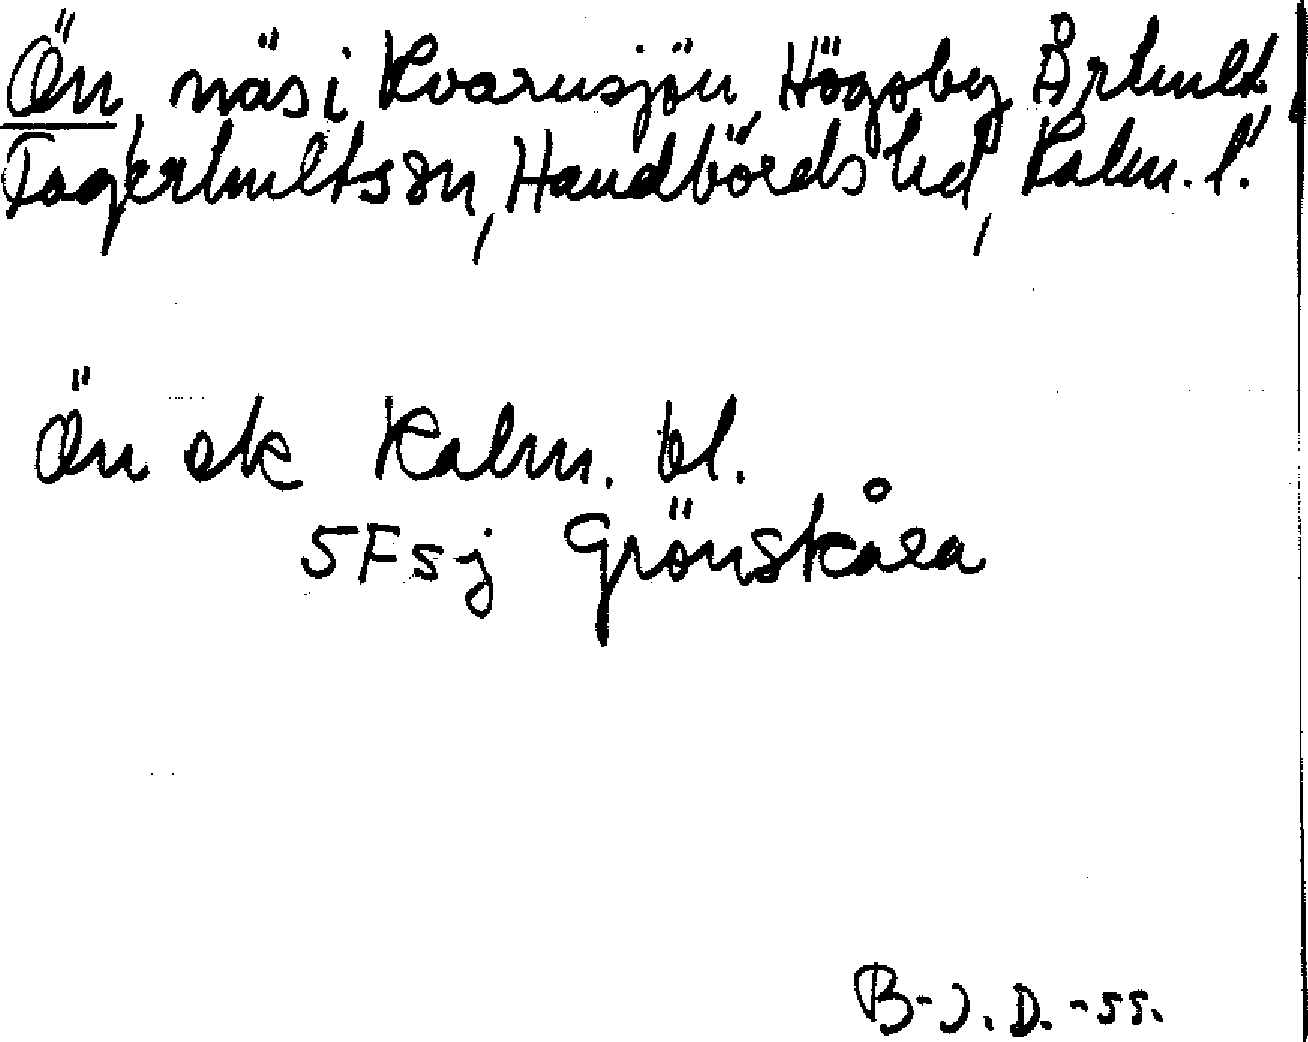 Ön, näs i Kvarnsjön, Högsby, Århult,
Fagerhults sn, Handbörds hd, Kalm. l.
Ön ek Kalm. bl.
5F5j Grönskåra
B-J. D. -55.